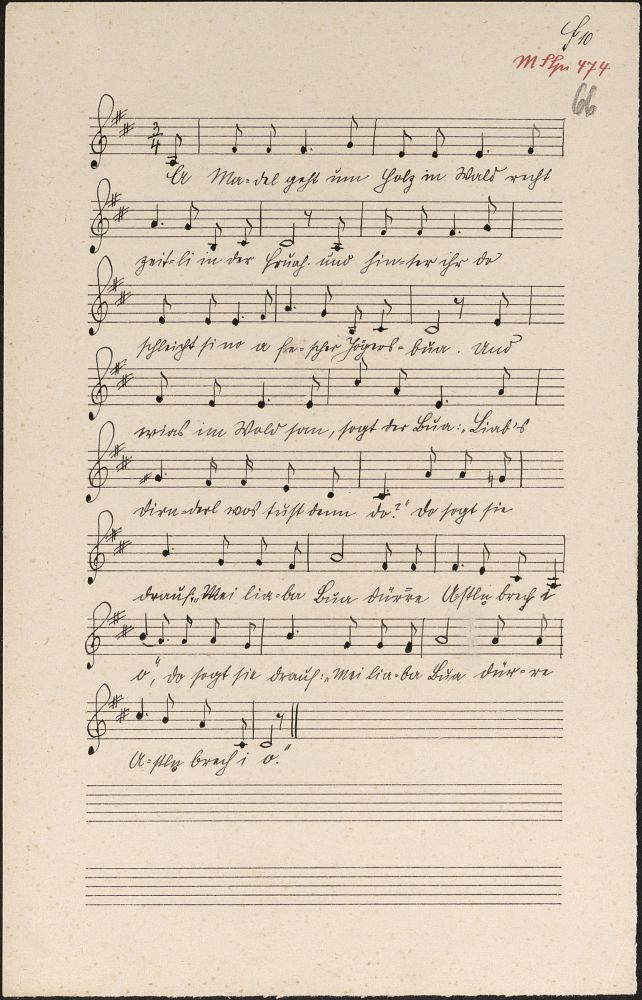 M Slgn 474
66
3/4
A Ma-del geht um Holz in Wald recht
zeit-li in der Fruah. und hin-ter ihr do
schleicht si no a fe-scher Jägers-bua. Und
wias im Wald san, sogt der Bua: „Liab's
Dirn-derl wos tust denn do?" Do sogt sie
drauf: „Mei lia-ba Bua dürre Astln brech i
o", do sogt sie drauf: „Mei lia-ba Bua dür-re
A-stln brech i o."